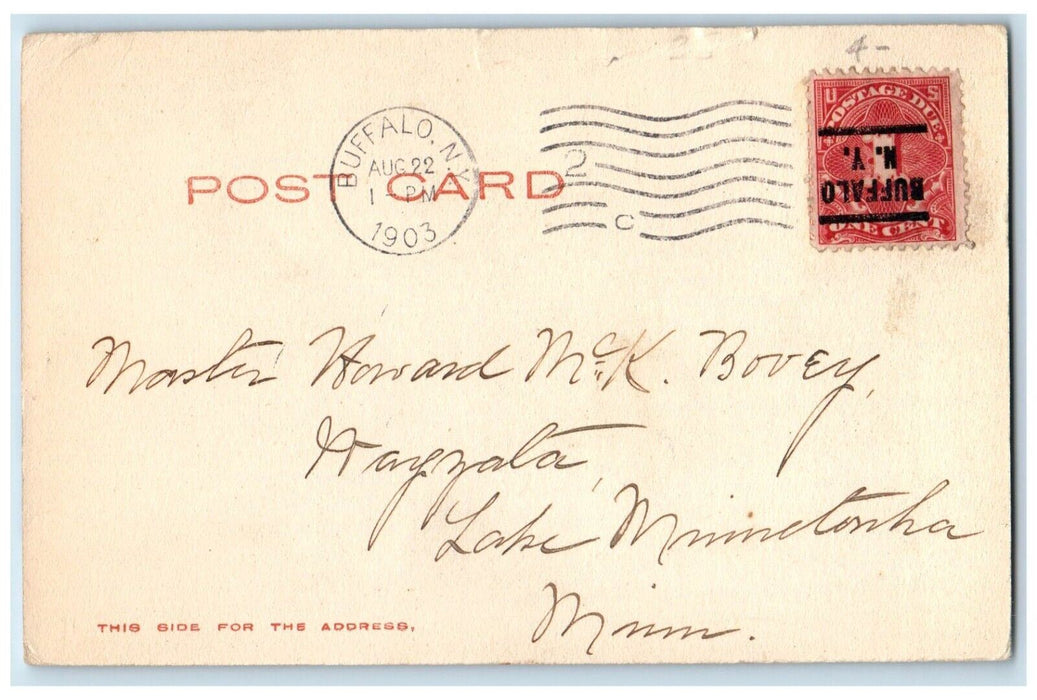 4-
U S
POSTAGE DUE
1
BUFFALO
N. Y.
ONE CENT
BUFFALO, N.Y.
AUG 22
1 - PM
1903
2
C
POST CARD
Master Howard McK. Bovey,
Wayzata,
Lake Minnetonka
Minn.
THIS SIDE FOR THE ADDRESS,